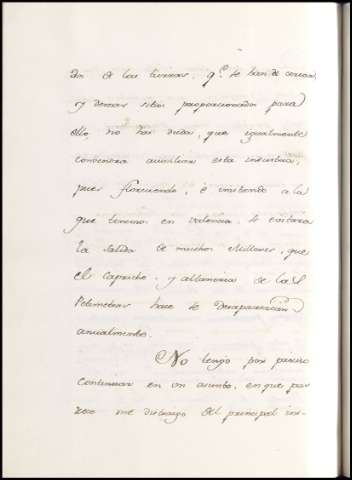 dio de las tierras, q.e se han de cercar
y demas sitios proporcionados para
ello, no hai duda, que igualmente
convendra auxiliar esta industria,
pues floreciendo, è imitando a la
que tenemos en Valencia, se evitaria
la salida de muchos Millones, que
el Capricho, y altaneria de las
Petimetras hace se desaparezcan
anualmente.
No tengo por preciso
continuar en un asunto, en que par
rece me distraigo del principal ins-